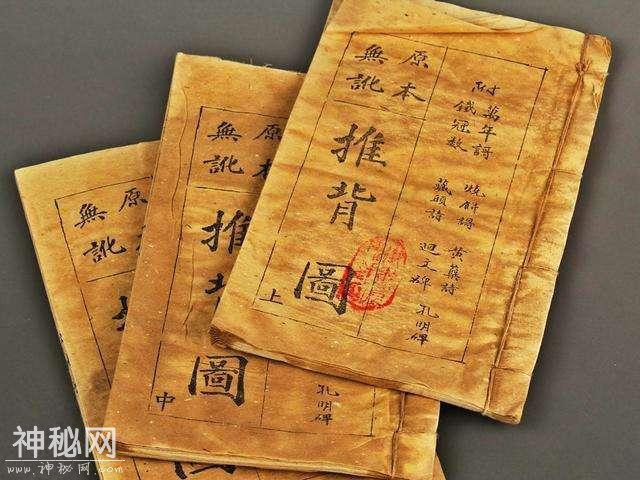 原本
無訛
推背圖
上
附
萬年謌
鐵冠數
燒餅謌
藏頭詩
黃蘗詩
迴文碑
孔明碑
原本
無訛
推背圖
中
孔明碑
原
無訛
神秘网
www.神秘网.com